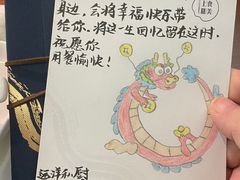 身边,会将幸福快乐带
给你.将这一生回忆留在这时.
祝愿你
用餐愉快!
上食
膳美